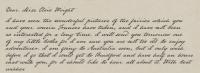 Dear Miss Elsie Wright
I have seen the wonderful pictures of the fairies which you
and your cousin Frances have taken, and I have not been
so interested for a long time. I will send you tomorrow one
of my little books for I am sure you are not too old to enjoy
adventures. I am going to Australia soon, but I only wish
before I go that I could get to Bradford and have half an hour's
chat with you, for I should like to hear all about it. With best
wishes